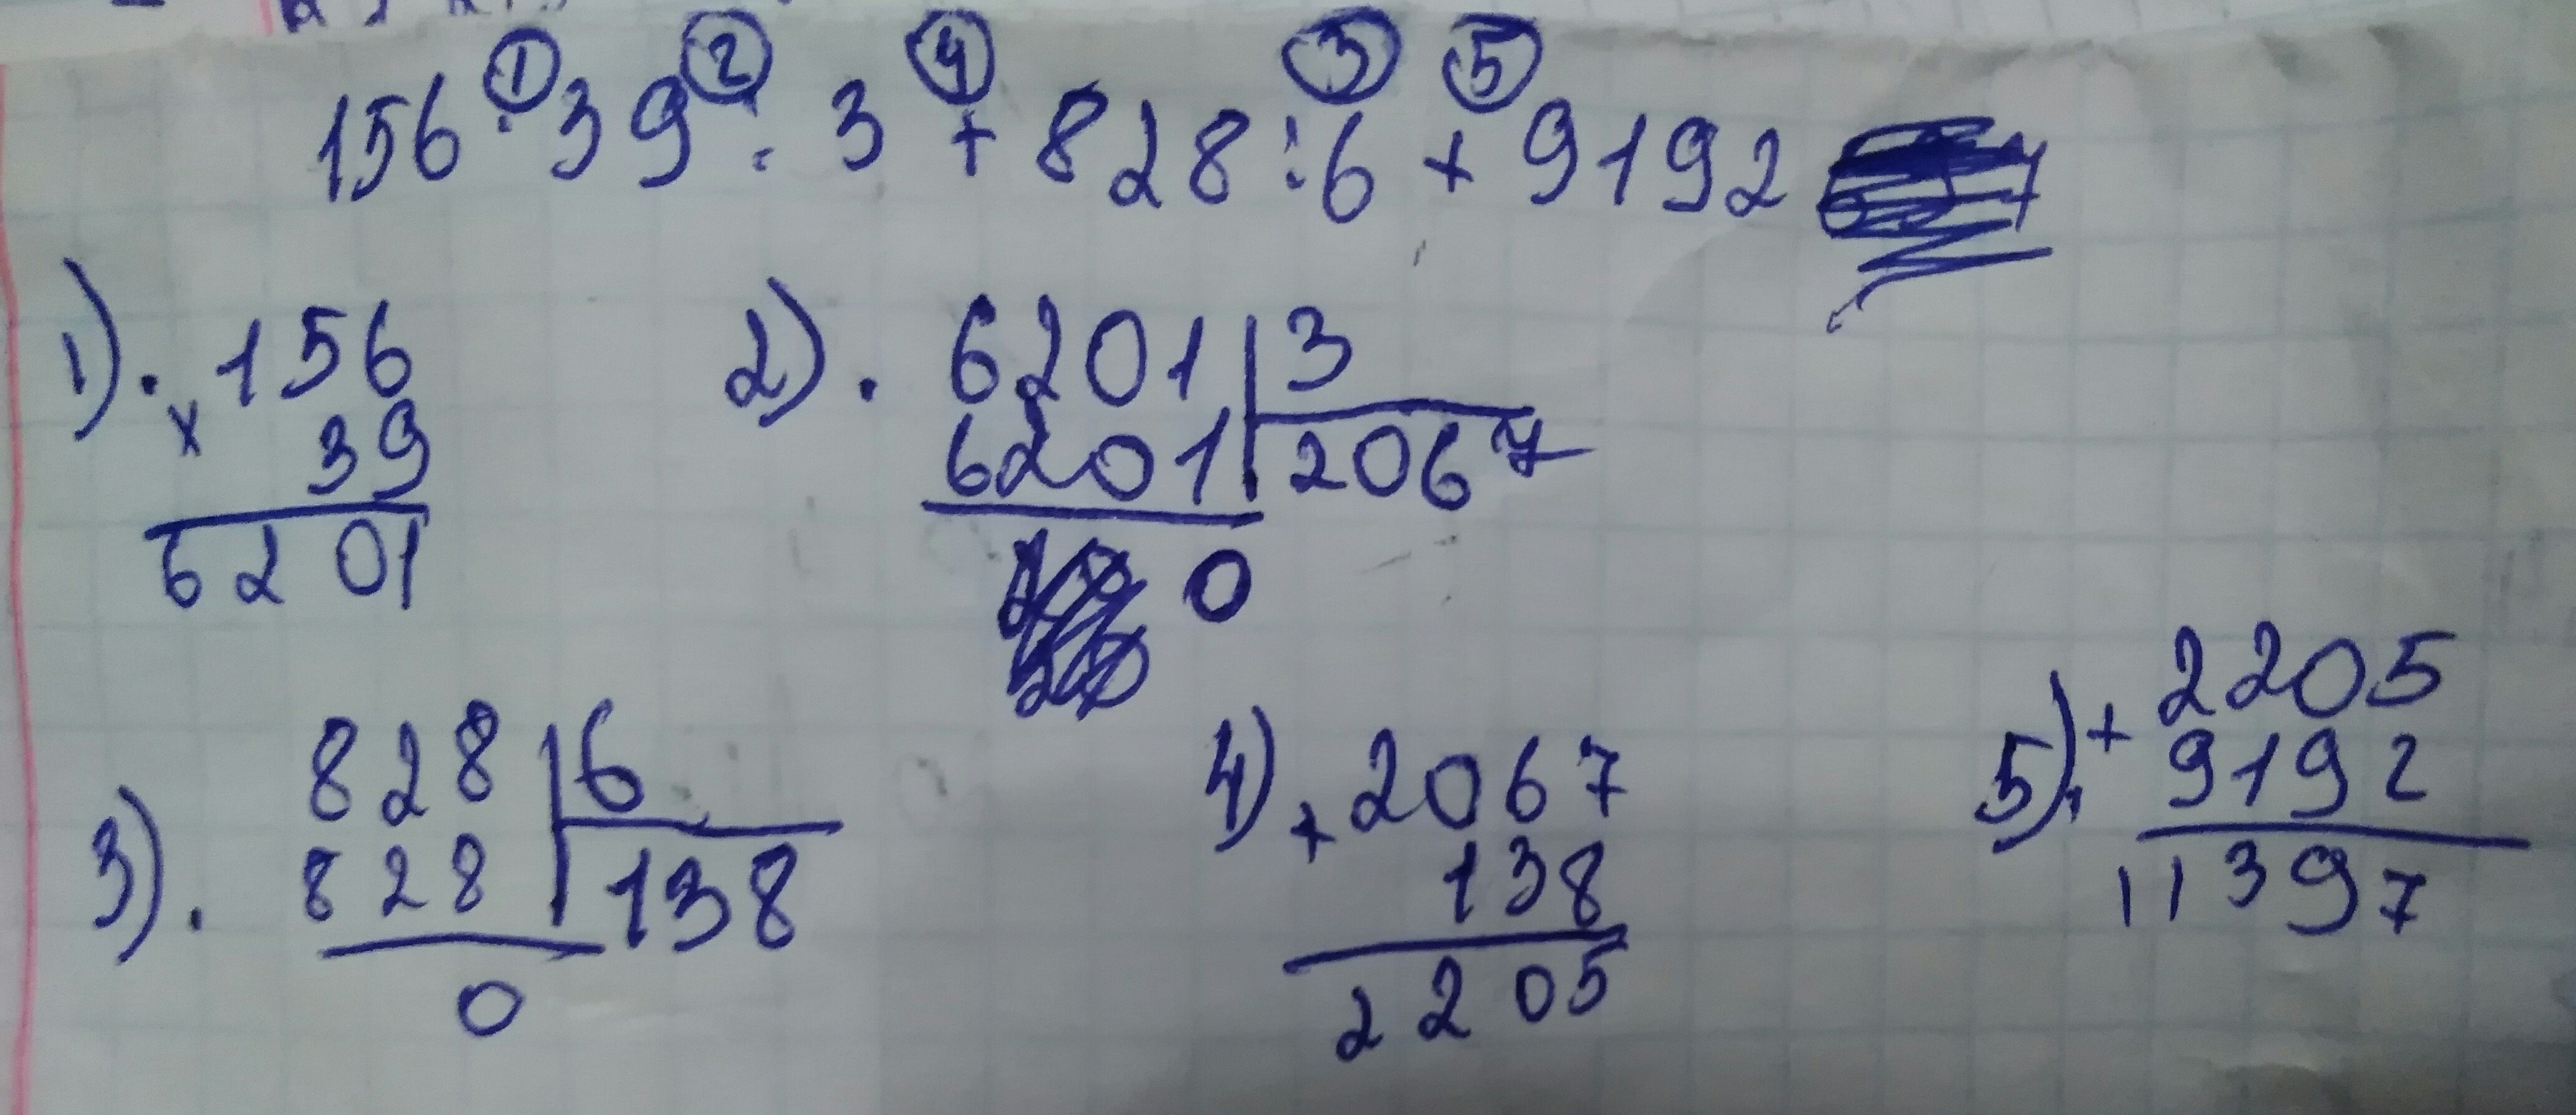 ① ② ④ ③ ⑤
156 · 39 : 3 + 828 : 6 + 9192
1). 156
× 39
6201
2). 6201 | 3
6201 | 2067
0
3). 828 | 6
828 | 138
0
4) + 2067
138
2205
5). + 2205
9192
11397